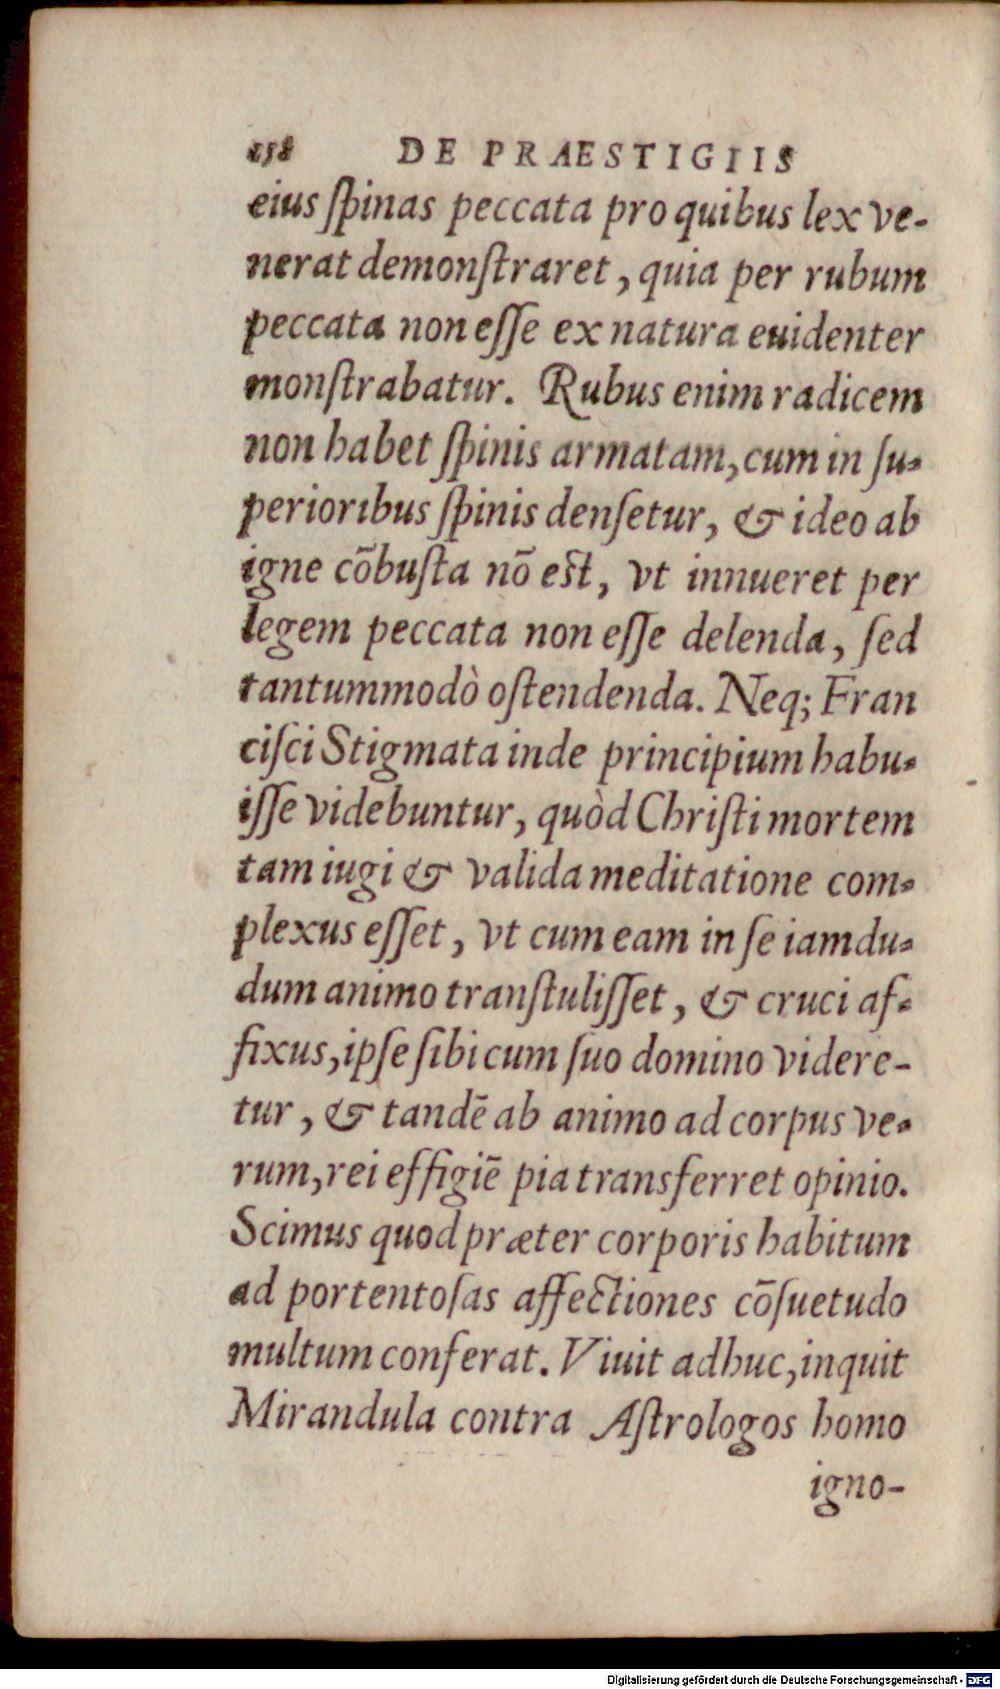 158 DE PRAESTIGIIS
eius ſpinas peccata pro quibus lex ve-
nerat demonſtraret, quia per rubum
peccata non eſſe ex natura euidenter
monſtrabatur. Rubus enim radicem
non habet ſpinis armatam, cum in ſu-
perioribus ſpinis denſetur, & ideo ab
igne cōbuſta nō est, vt innueret per
legem peccata non eſſe delenda, ſed
tantummodò oſtendenda. Neq; Fran
ciſci Stigmata inde principium habu-
iſſe videbuntur, quòd Chriſti mortem
tam iugi & valida meditatione com-
plexus eſſet, vt cum eam in ſe iamdu-
dum animo tranſtuliſſet, & cruci af-
fixus, ipſe ſibi cum ſuo domino videre-
tur, & tandē ab animo ad corpus ve-
rum, rei effigiē pia transferret opinio.
Scimus quod præter corporis habitum
ad portentoſas affectiones cōſuetudo
multum conferat. Viuit adhuc, inquit
Mirandula contra Aſtrologos homo
igno-
Digitalisierung gefördert durch die Deutsche Forschungsgemeinschaft - DFG